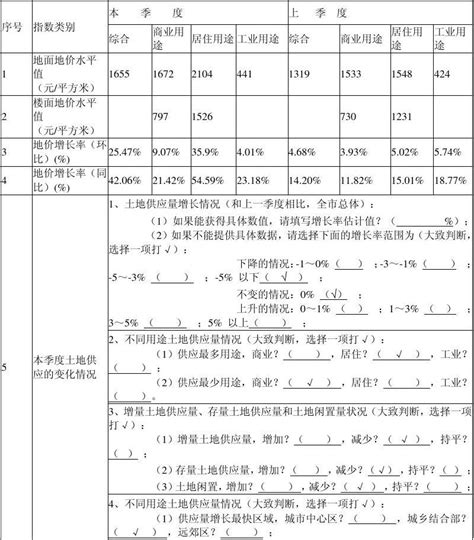 序号 指数类别 本 季 度 上 季 度
综合 商业用途 居住用途 工业用途 综合 商业用途 居住用途 工业用途
1 地面地价水平值（元/平方米） 1655 1672 2104 441 1319 1533 1548 424
2 楼面地价水平值（元/平方米） 797 1526 730 1231
3 地价增长率（环比）(%) 25.47% 9.07% 35.9% 4.01% 4.68% 3.93% 5.02% 5.74%
4 地价增长率（同比）(%) 42.06% 21.42% 54.59% 23.18% 14.20% 11.82% 15.01% 18.77%
5 本季度土地供应的变化情况
1、土地供应量增长情况（和上一季度相比，全市总体）：
（1）如果能获得具体数值，请填写增长率估计值？（ %）；
（2）如果不能提供具体数据，请选择下面的增长率范围为（大致判断，
选择一项打√）：
下降的情况:-1~0%（ ）；-3~-1%（ ）；
-5~-3% （ ）；-5% 以下（ √ ）；
不变的情况：0% （√）；
上升的情况：0~1% （ ）；1~3% （ ）；
3~5% （ ）；5% 以上（ ）；
2、不同用途土地供应量情况（大致判断，选择一项打√）：
（1）供应最多用途，商业？（ ），居住？（ √ ），工业？
（ ）；
（2）供应最少用途，商业？（ √ ），居住？（ ），工业？
（ ）。
3、增量土地供应量、存量土地供应量和土地闲置量状况（大致判断，选择一项
打√）：
（1）增量土地供应量，增加？（ ），减少？（ √ ），持平？
（ ）；
（2）存量土地供应量，增加？（ ），减少？（√），持平？（ ）；
（3）土地闲置，增加？（ ），减少？（ √ ），持平？（ ）；
4、不同用途土地供应量情况（大致判断，选择一项打√）：
（1）供应量增长最快区域，城市中心区？（ ），城乡结合部？
（ √ ），远郊区？（ ）；